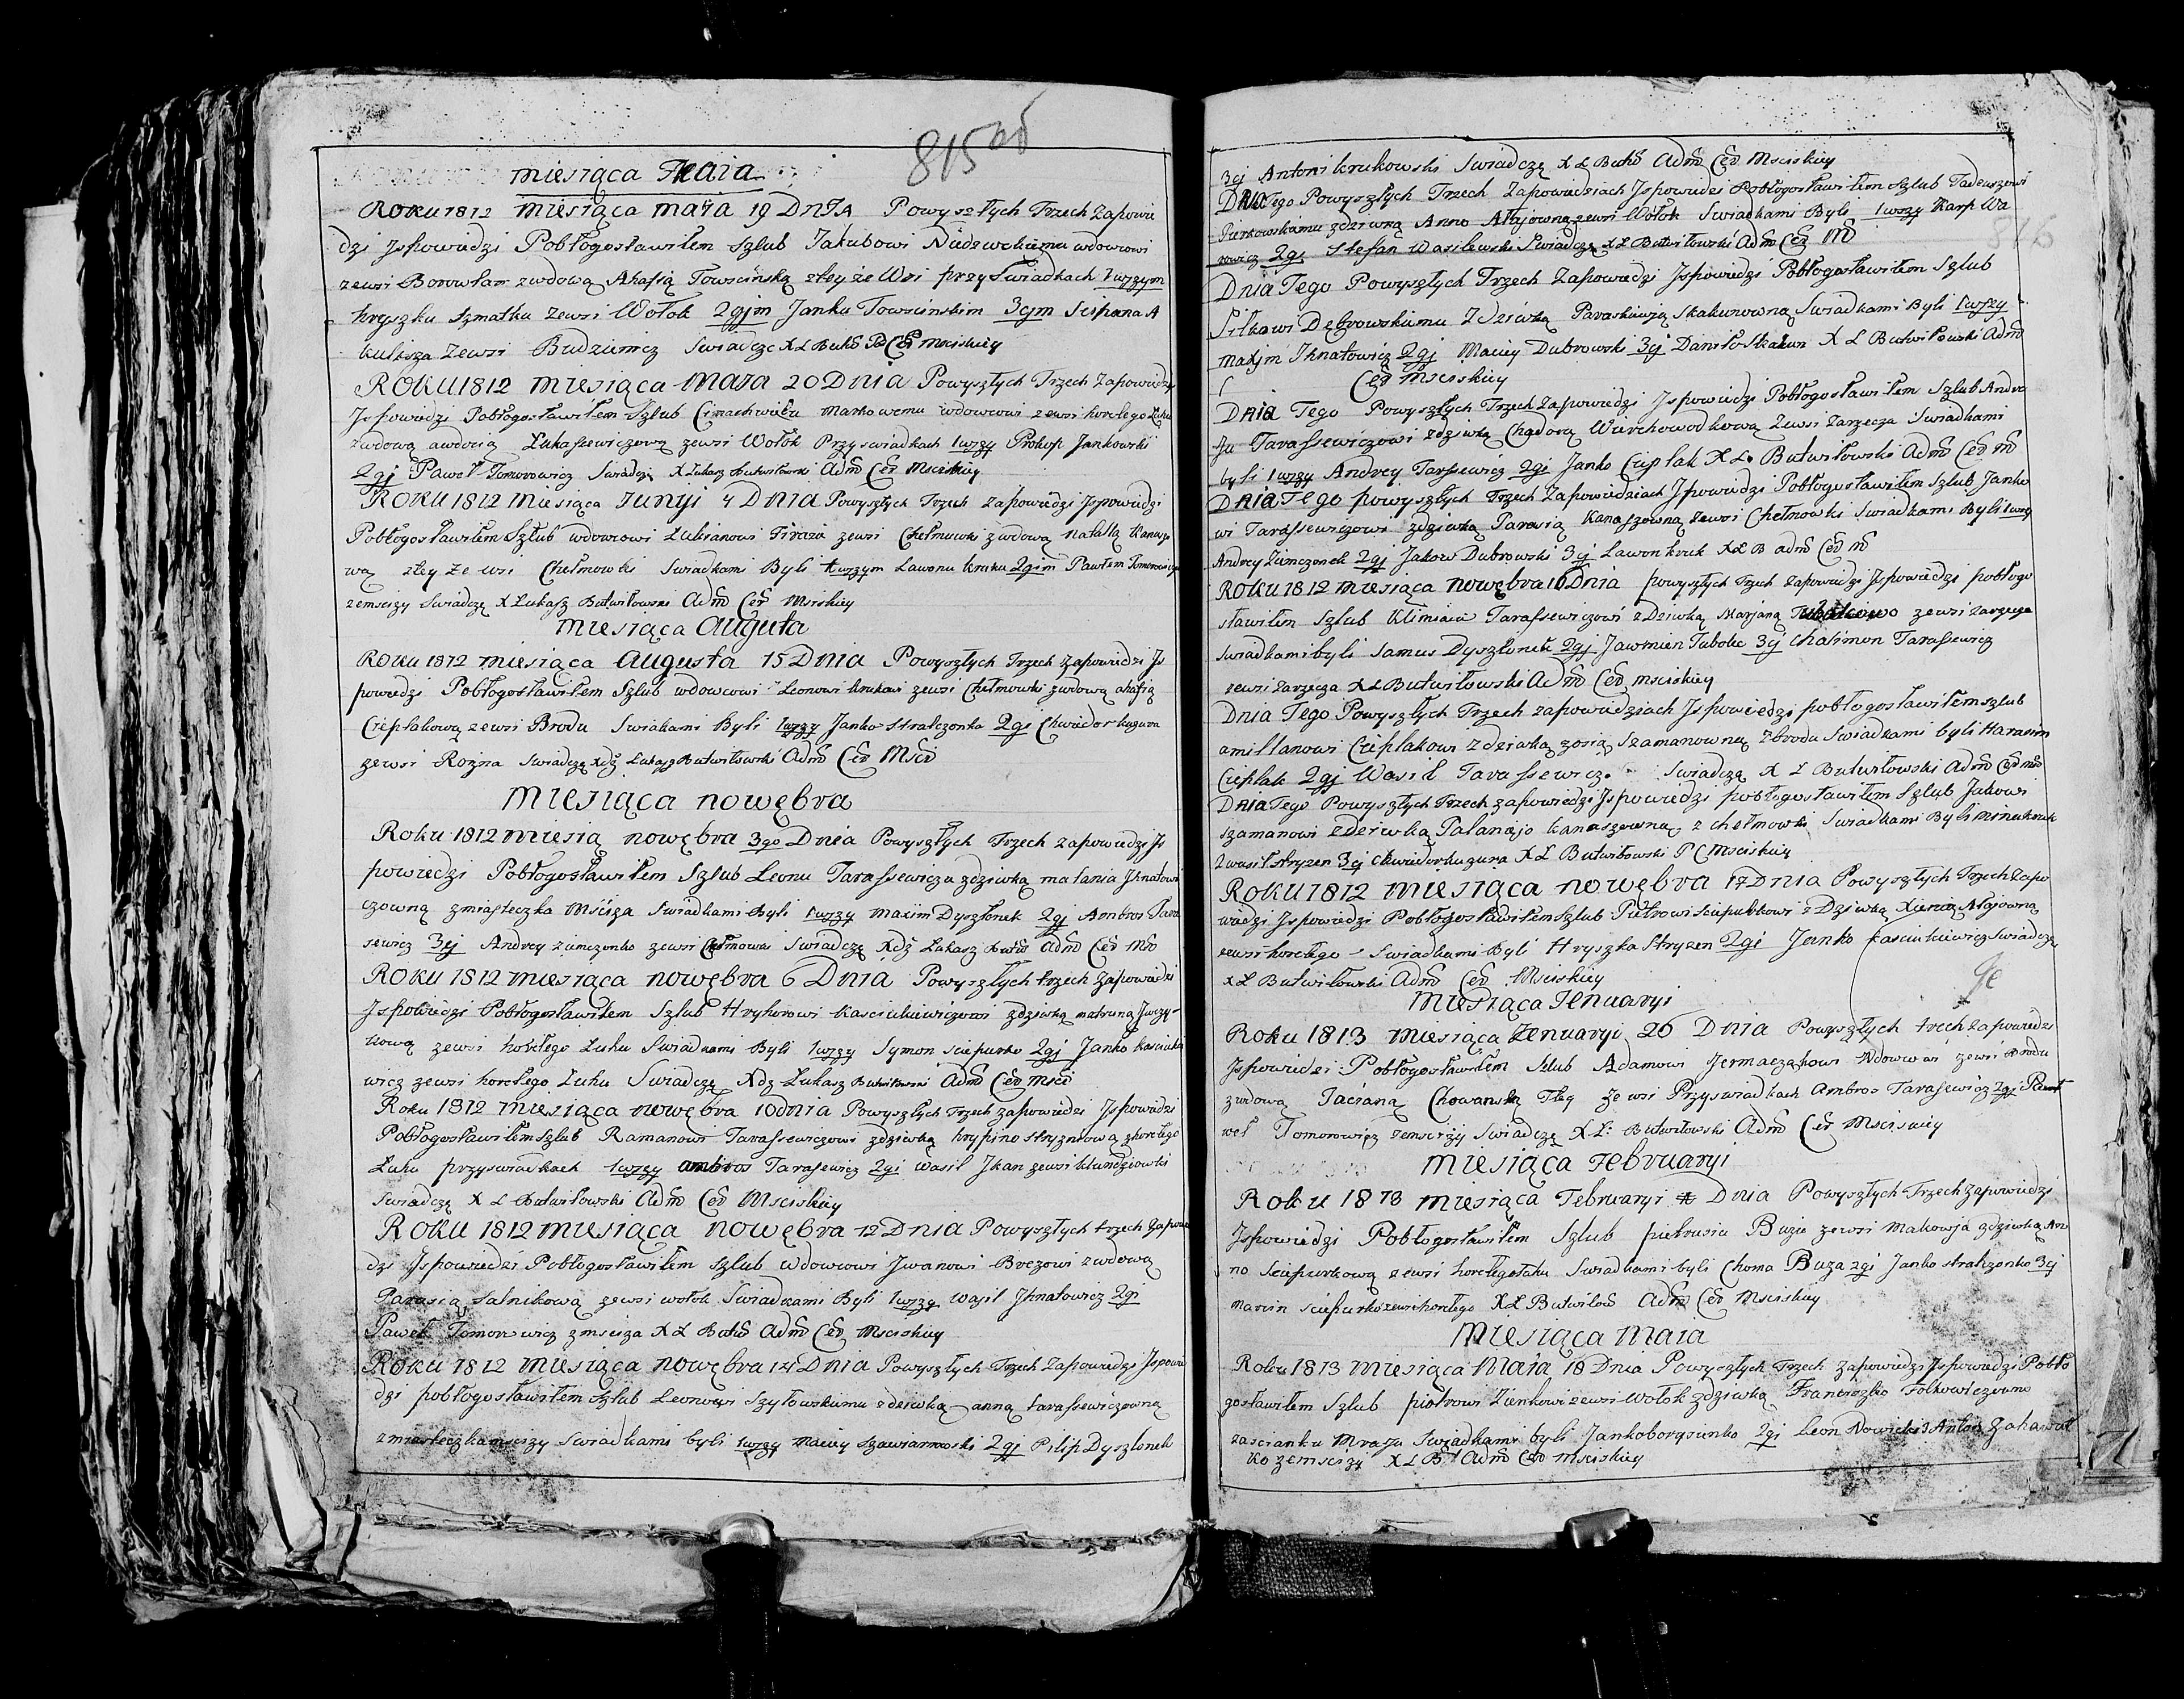 815 об
miesiąca Maia
Roku 1812 miesiąca maia 19 DnIA Powyszłych Trzech Zapowie
dzi Jspowiedzi Pobłogosławiłem szlub Jakubowi Niedzwckiemu wdowcowi
zewsi Borowlan zwdową Ahafią Towscinską ztey że Wsi przy Swiadkach 1wszym
hryszku szmatku zewsi Wołok 2gjm Janku Towscinskim 3cjm Scipana A
kulisza Zewsi Budzienicz Swiadczę X L Butw P Cer Msciskiey
ROKU 1812 miesiąca Maja 20 Dnia Powyszłych Trzech Zapowiedzy
Jspowiedzi Pobłogosławiłem Szlub Cimachwieiu Markowemu wdowcowi zewsi horełego Łuhu
zwdową awdocią Łukaszewiczową zewsi Wołok Przy swiadkach 1wszy Prokop Jankowski
2gj Paweł Tomorowicz Swiadczę X Łukasz Butwiłowski Adm Cer Msciskiey
ROKU 1812 Miesiąca Junyi 4 Dnia Powyszłych Trzech Zapowiedzi Jspowiedzi
Pobłogosławiłem Szlub wdowcowi Łukianowi Firaza zewsi Chełmowki zwdową Natallą Kanasze
wą ztey że wsi Chełmowki Swiadkami Byli 1wszym Lawonu kruku 2gim Pawłem Tomorowicz
zemscizy Swiadczę X Łukasz Butwiłowski Adm Cer Msciskiey
Miesiąca Auguta
Roku 1812 miesiąca Augusta 15 Dnia Powyszłych Trzech Zapowiedzi Js
powiedzi Pobłogosławiłem Szlub wdowcowi Leonowi krukowi zewsi Chełmowki zwdową ahafią
Cieplakową zewsi Brodu Swiakami Byli 1wszy Janko Stralczonka 2gi Chwiedor kugura
zewsi Rożna Swiadczę Xdz Łukasz Butwiłowski Adm Cer Msci
Miesiąca nowębra
Roku 1812 miesią nowębra 3go Dnia Powyszłych Trzech Zapowiedzi Js
powiedzi Pobłogosławiłem Szlub Leonu Tarassewiczu zdziwką matania Jhnatowi
czowną zmiasteczka Mściża Swiadkami Byli 1wszy maxim Dyszlonek 2gj Ambros Tara
sewicz 3ej Andrey zimczonko zewsi Chełmowki Swiadczę Xdz Łukasz Butw Adm Cer Ms
ROKU 1812 miesiąca nowębra 6 Dnia Powyszłych trzech Zapowiedzi
Jspowiedzi Pobłogosławiłem Szlub Hryhorowi Kasciukiewiczowi zdziwką matruną Juczy-
kową zewsi horełego Łuhu Swiadkami Byli 1wszy Symon sciepurko 2gj Janko kasciukie
wicz zewsi horełego Łuhu Swiadczę Xdz Łukasz Butwiłowski Adm Cer Msci
Roku 1812 miesiąca nowębra 10 dnia Powyszłych Trzech zapowiedzi Jspowiedzi
Pobłogosławiłem szlub Ramanowi Tarassewiczowi zdziwką hrypino stryznrową zhorełego
Łuhu przyswiadkach 1wszy ambros Tarasewicz 2gi Wasil Jkan zewsi klundziowki
Swiadczę X L Butwiłowski Adm Cer Msciskiey
ROKU 1812 miesiąca nowębra 12 Dnia Powyszłych trzech Zapowie
dzi Jspowiedzi Pobłogosławiłem szlub wdowcowi Jwanowi Brezowi zwdową
Parasią Salnikową zewsi wołok Swiadkami Byli 1wszy Wasil Jhnatowicz 2gi
Paweł Tomorowicz zmsciza X L Butw Adm Cer Msciskiey
ROKU 1812 miesiąca nowębra 14 Dnia Powyszłych Trzech Zapowiedzi Jspowie
dzi pobłogosławiłem szlub Leonowi Szyłowskiemu zdziwką anną tarassewiczowną
zmiasteczkamscizy Swiadkami byli 1wszy Maciey Szawiarnowski 2gj Pilip Dyszlonek
3cj Antoni krukowski Swiadczę X L Butw Adm Cer Msciskiey
DniaTego Powyszłych Trzech Zapowiedziach Jspowiedzi Pobłogosławiłem szlub Tadeuszowi
Piurkowskiemu zdziwką Anno Ałajowną zewsi Wołok Swiadkami Byli 1wszy Karp Wa
rowicz 2gi Stefan Wasilewski Swiadczę X L Butwiłowski Adm Cer M
Dnia Tego Powyszłych Trzech Zapowiedzi Jspowiedzi Pobłogosławiłem Szlub
Piłkowi Dębrowskiemu Zdziwką Paraskiewią Skakunowną Swiadkami Byli 1wszy
Maxim Jhnatowicz 2gj Maciey Dubrowski 3cj Daniło Skakun X L Butwiłowski Adm
Cer Msciskiey
Dnia Tego Powyszłych Trzech Zapowiedzi Jspowiedzi Pobłogosławiłem Szlub Andre
ju Tarassewiczowi zdziwką Chądorą Wierchowodkową Zewsi Zarzecza Swiadkami
byli 1wszy Andrey Tarssewicz 2gi Janko Cieplak X L Butwiłowski Adm Cer M
DniaTego powyszłych Trzech Zapowiedziach Jspowiedzi Pobłogosławiłem Szlub Janko
wi Tarassewiczowi zdziwką Parasią Kanaszowną zewsi Chełmowki Swiadkami Byli 1wszy
Andrey Zimczonek 2gj Jakow Dubrowski 3cj Lawon kruk X L B adm Cer M
ROKU 1812 miesiąca nowębra 16 Dnia powyszłych Trzych zapowiedzi Jspowiedzi pobłogo
sławiłem Szlub Klimiaiu Tarassewiczowi zDziwką Marjaną zewsi zarzeze
swiadkamibyli samus Dyszlonek 2gj Jawmien Tubolec 3cj Chalimon Tarassewicz
zewsi zarzecza X L Butwiłowski Adm Cer Msciskiey
Dnia Tego Powyszłych Trzech zapowiedziach Jspowiedzi pobłogosławiłem szlub
amillanowi Cieplakowi zdziwką zosią Szamanowną Zbrodu Swiadkami byli Harasim
Cieplak 2gj Wasil Tarassewicz. Swiadczę X L Butwiłowski Adm Cer Ms
DniaTego Powyszłych Trzech zapowiedzi Jspowiedzi pobłogosławiłem szlub Jakowi
szamanowi zdziwką Palanąjo kanaszewną z chełmowki Swiadkami Byli minakruk
2wasilstryzen 3cj chwidorkugura X L Butwiłowski P C Msciskiey
ROKU 1812 miesiąca nowębra 17 Dnia Powyszłych TrzechZapo
wiedzi Jspowiedzi PobłogosławiłemSzlub Piotrowi sciepurkowi zDziwką Xienią Ałajowną
zewsi horełego Swiadkami Byli Hryszka Stryzen 2gi Janko kasciukiewicz Swiadczę
X L Butwiłowski Adm Cer Msciskiey
Miesiąca Jenuaryi
Roku 1813 Miesiąca Jenuaryi 26 Dnia Powyszłych trech Zapowiedzi
Jspowiedzi Pobłogosławiłem Slub Adamowi Jermaczapowi wdowcowi zewsi Brodu
zwdową Taćianą Chowanską Tey że wsi Przyswiadkach Ambros Tarasewicz 2gj Paweł
weł Tomorowicz zemscizy Swiadczę X L: Butwiłowski Adm Cer Msciskiey
miesiąca Februaryi
Roku 1813 miesiąca Februaryi Dnia Powyszłych Trzech Zapowiedzi
Jspowiedzi Pobłogosławiłem Szlub pietrusiu Buzie zewsi Makowja zdziwką An
no Sciepurkową zewsi horełegołuhu Swiadkami byli Choma Buza 2gi Janko stralczonko 3cj
Marcin sciepurkozewsihorełego X L Butwiłow Adm Cer Msciskiey
Miesiąca Maia
Roku 1813 miesiąca Maia 18 Dnia Powyszłych Trzech Zapowiedzi Jspowiedzi Pobło
gosławiłem Szlub piotrowi Zienkowi zewsi Wołok zdziwką Franciszko Folkowiczowno
zascianku Mraju Swiadkami byli Jankoborysienko 2gi Leon Nowicki 3 Antoni Zahawal
ko zemscizy X L B Adm Cer Msciskiey